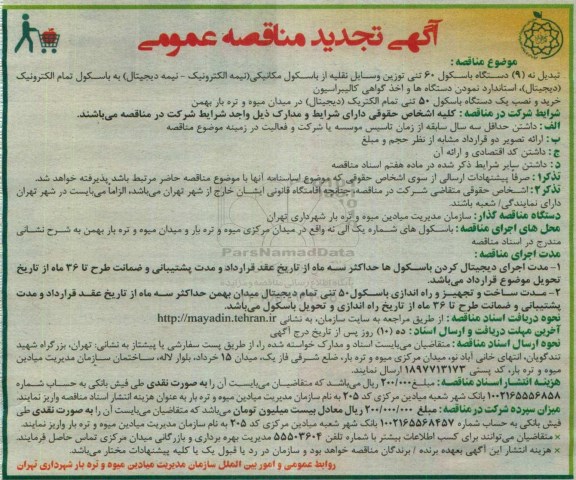 آگهی تجدید مناقصه عمومی
موضوع مناقصه :
تبدیل نه (۹) دستگاه باسکول ۶۰ تنی توزین وسایل نقلیه از باسکول مکانیکی(نیمه الکترونیک - نیمه دیجیتال) به باسکول تمام الکترونیک
(دیجیتال)، استاندارد نمودن دستگاه ها و اخذ گواهی کالیبراسیون
خرید و نصب یک دستگاه باسکول ۵۰ تنی تمام الکتریک (دیجیتال) در میدان میوه و تره بار بهمن
شرایط شرکت در مناقصه : کلیه اشخاص حقوقی دارای شرایط و مدارک ذیل واجد شرایط شرکت در مناقصه می‌باشند.
الف : داشتن حداقل سه سال سابقه از زمان تاسیس موسسه یا شرکت و فعالیت در زمینه موضوع مناقصه
ب : ارائه تصویر دو قرارداد مشابه از نظر حجم و مبلغ
ج : داشتن کد اقتصادی و ارائه آن
د : داشتن سایر شرایط ذکر شده در ماده هفتم اسناد مناقصه
تذکر۱ : صرفاً پیشنهادات ارسالی از سوی اشخاص حقوقی که موضوع اساسنامه آنها با موضوع مناقصه حاضر مرتبط باشد پذیرفته خواهد شد.
تذکر۲ : اشخاص حقوقی متقاضی شرکت در مناقصه، چنانچه اقامتگاه قانونی ایشان خارج از شهر تهران می‌باشد، الزاما می‌بایست در شهر تهران
دارای نمایندگی/ شعبه باشند.
دستگاه مناقصه گذار : سازمان مدیریت میادین میوه و تره بار شهرداری تهران
محل های اجرای مناقصه : باسکول های شماره یک الی نه واقع در میدان مرکزی میوه و تره بار و میدان میوه و تره بار بهمن به شرح نشانی
مندرج در اسناد مناقصه
مدت اجرای مناقصه :
۱- مدت اجرای دیجیتال کردن باسکول ها حداکثر سه ماه از تاریخ عقد قرارداد و مدت پشتیبانی و ضمانت طرح تا ۳۶ ماه از تاریخ
تحویل موضوع قرارداد می‌باشد.
۲- مدت ساخت و تجهیز و راه اندازی باسکول ۵۰ تنی تمام دیجیتال میدان بهمن حداکثر سه ماه از تاریخ عقد قرارداد و مدت
پشتیبانی و ضمانت طرح تا ۳۶ ماه از تاریخ راه اندازی و تحویل باسکول می‌باشد.
نحوه دریافت اسناد مناقصه : از طریق مراجعه به سایت سازمان، به نشانی http://mayadin.tehran.ir
آخرین مهلت دریافت و ارسال اسناد : ده (۱۰) روز پس از تاریخ درج آگهی
نحوه ارسال اسناد مناقصه : متقاضیان می‌بایست اسناد و مدارک خواسته شده را، از طریق پست سفارشی یا پیشتاز به نشانی: تهران، بزرگراه شهید
تندگویان، انتهای خانی آباد نو، میدان مرکزی میوه و تره بار، ضلع شرقی فاز یک، میدان ۱۵ خرداد، بلوار لاله، ساختمان سازمان مدیریت میادین
میوه و تره بار، کد پستی ۱۸۹۷۷۱۳۱۷۳ ارسال نمایند.
هزینه انتشار اسناد مناقصه : مبلغ ۲۰۰/۰۰۰ ریال می‌باشد که متقاضیان می‌بایست آن را به صورت نقدی طی فیش بانکی به حساب شماره
۱۰۰۲۱۶۵۵۵۶۸۵۸ بانک شهر شعبه میادین مرکزی کد ۲۰۵ به نام سازمان مدیریت میادین میوه و تره بار به عنوان هزینه انتشار اسناد مناقصه واریز نمایند.
میزان سپرده شرکت در مناقصه : مبلغ ۲۰۰/۰۰۰/۰۰۰ ریال معادل بیست میلیون تومان می‌باشد که متقاضیان می‌بایست آن را به صورت نقدی طی
فیش بانکی به حساب شماره ۱۰۰۲۱۶۵۵۶۸۴۵۷ بانک شهر شعبه میادین مرکزی کد ۲۰۵ به نام سازمان مدیریت میادین میوه و تره بار واریز نمایند.
× متقاضیان می‌توانند برای کسب اطلاعات بیشتر با شماره تلفن ۵۵۵۰۳۶۰۴ مدیریت بهره برداری و بازرگانی میدان مرکزی تماس حاصل فرمایند.
× هزینه انتشار این آگهی بعهده برنده / برندگان مناقصه خواهد بود و سازمان در رد یا قبول یک یا کلیه پیشنهادات مختار می‌باشد.
روابط عمومی و امور بین الملل سازمان مدیریت میادین میوه و تره بار شهرداری تهران
ParsNamadData